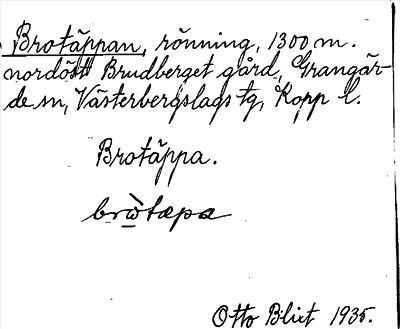 Brotäppan, rönning, 1300 m.
nordöst Brudberget gård, Grangär-
de sn, Västerbergslags tg, Kopp l.
Brotäppa.
brὼ̲tæpa
Otto Blixt 1935.